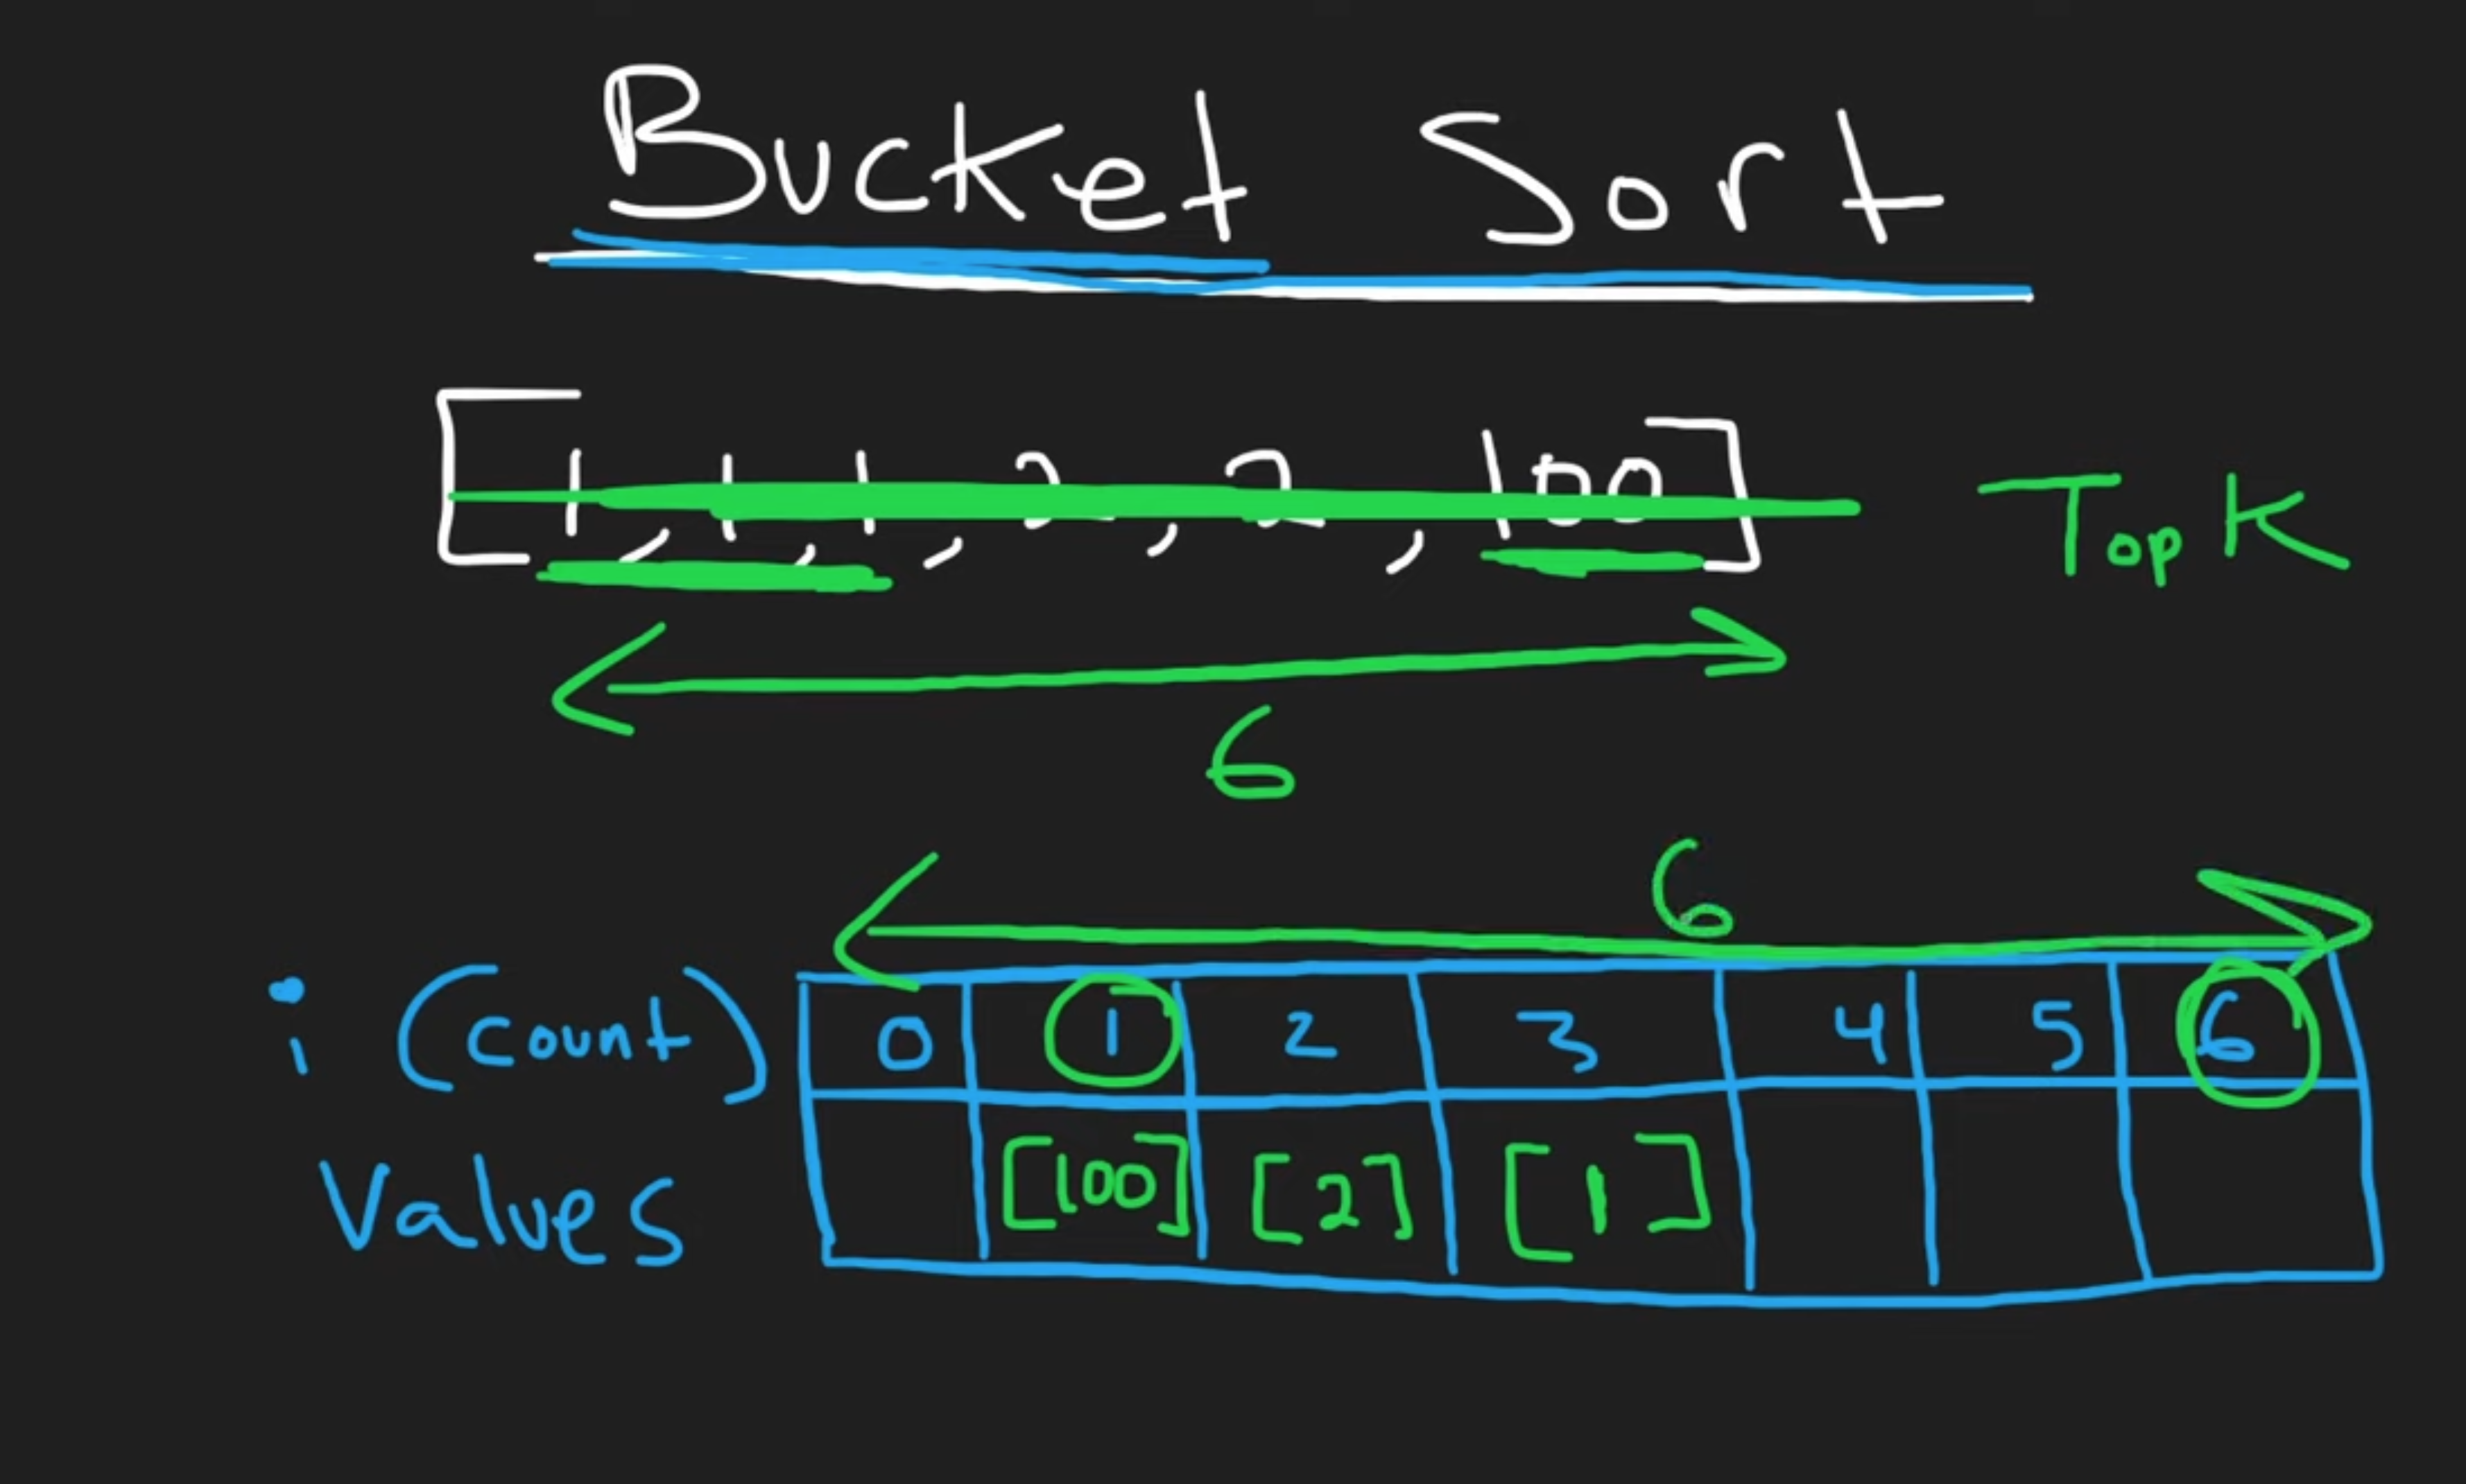 Bucket Sort
[1, 1, 1, 2, 2, 100] Top K
6
6
i (count) 0 1 2 3 4 5 6
Values [100] [2] [1]